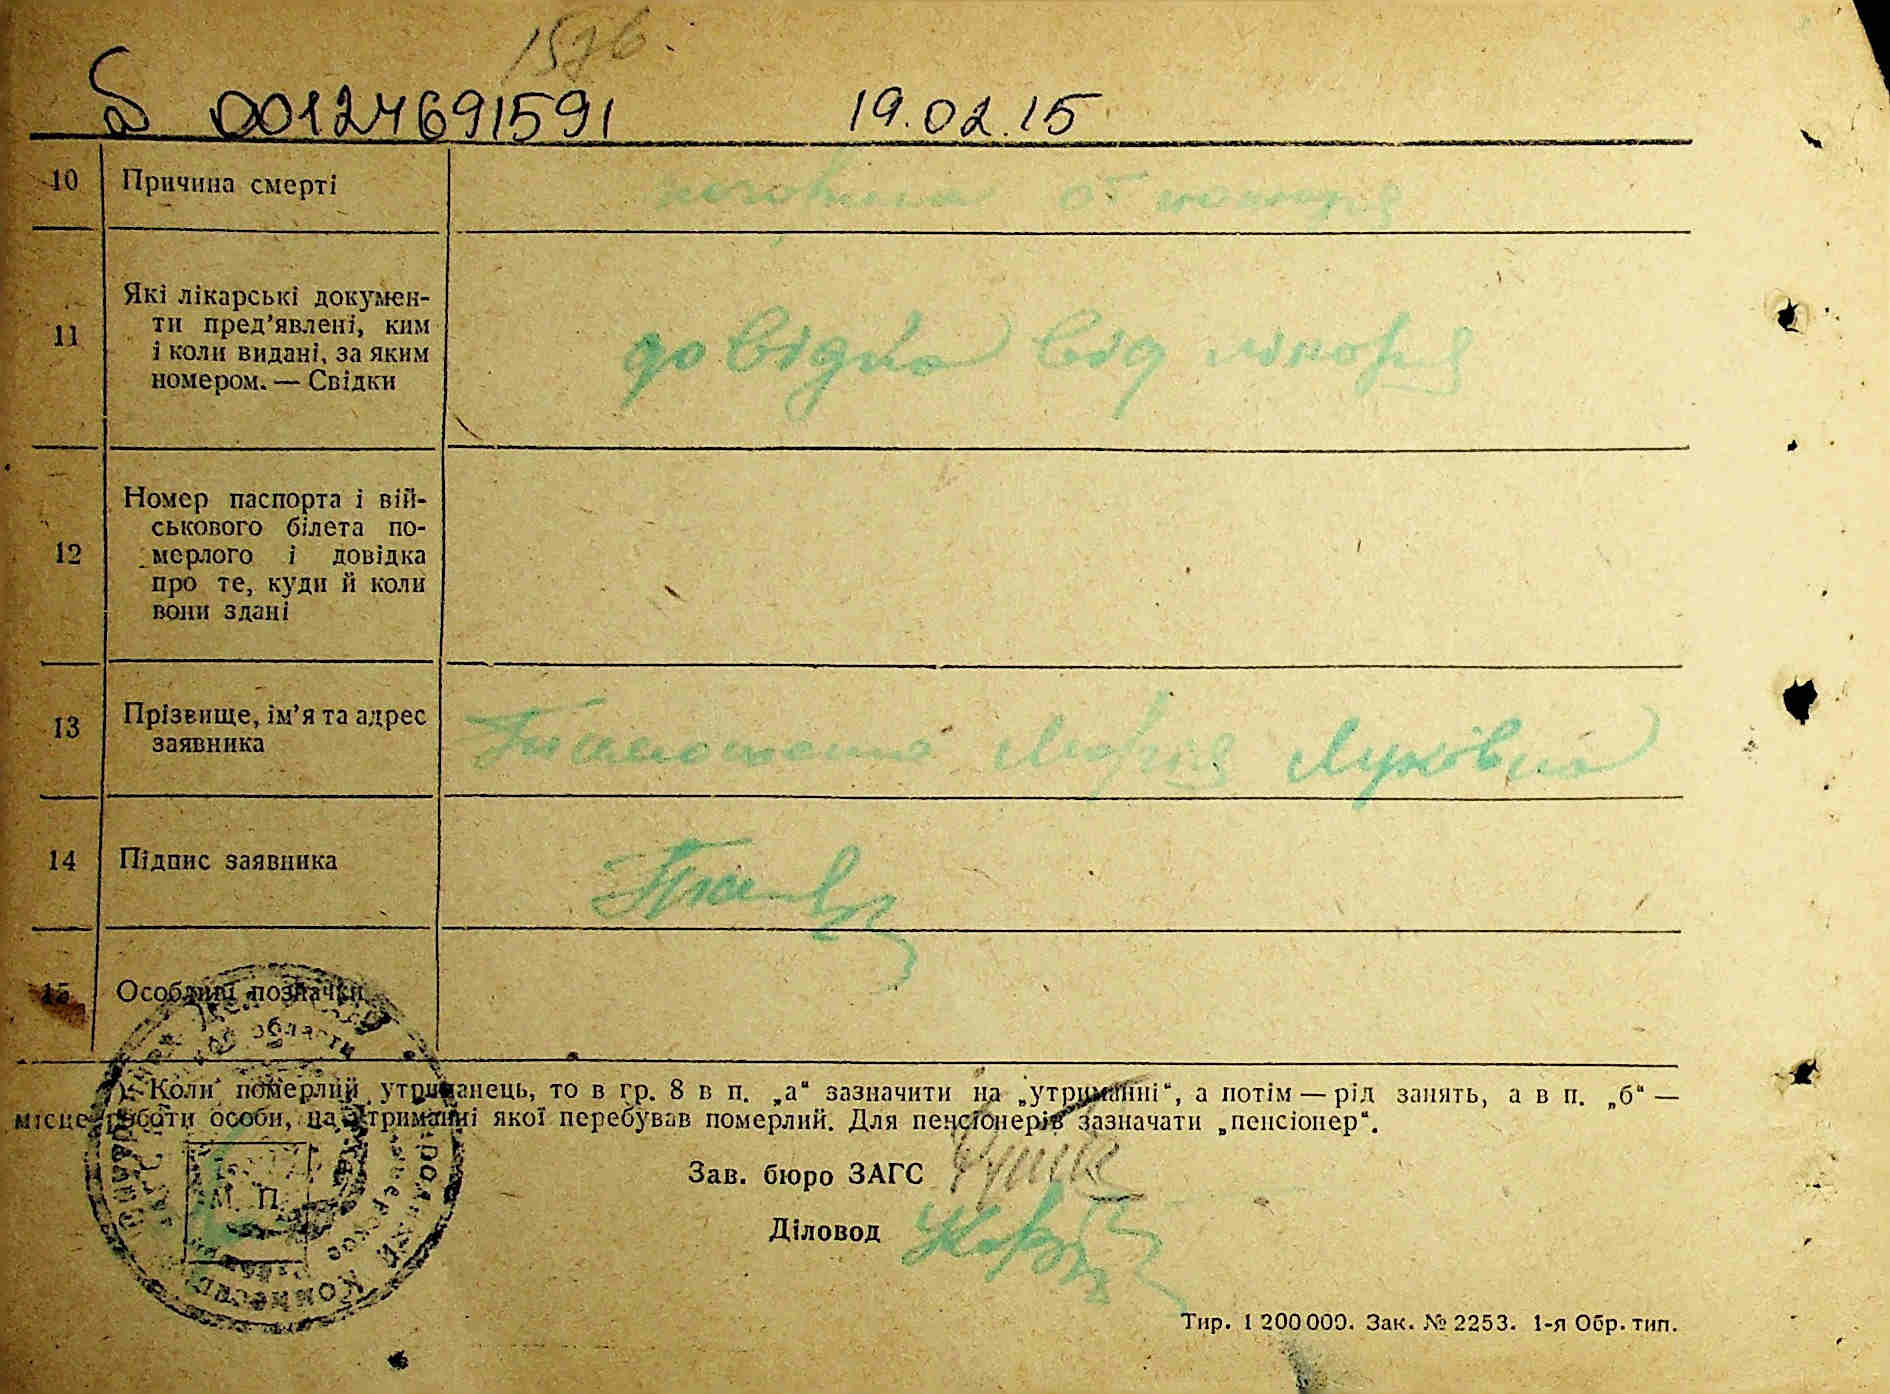 157б.
S 00124691591 19.02.15
10 Причина смерті
11 Які лікарські докумен-
ти пред’явлені, ким
і коли видані, за яким
номером. — Свідки
довідка від лікаря
12 Номер паспорта і вій-
ськового білета по-
мерлого і довідка
про те, куди й коли
вони здані
13 Прізвище, ім’я та адрес
заявника
Марія Луківна
14 Підпис заявника
15 Особливі позначки
*) Коли померлий утриманець, то в гр. 8 в п. „а“ зазначити на „утриманні“, а потім — рід занять, а в п. „б“ —
місце роботи особи, на утриманні якої перебував померлий. Для пенсіонерів зазначати „пенсіонер“.
Зав. бюро ЗАГС
М. П.
Діловод
Тир. 1 200 000. Зак. № 2253. 1-я Обр. тип.